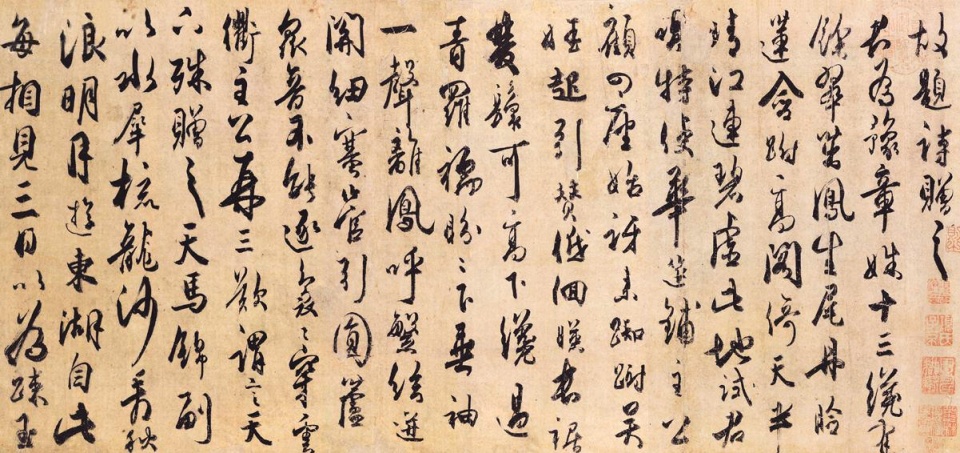 故題詩贈之
君為豫章姝十三纔有
餘翠茁鳳生尾丹臉
蓮含跗高閣倚天半
晴江連碧虛此地試君
唱特使華筵鋪主公
顧四座始訝來踟躕吳
娃起引贊低佪暎長裾
雙鬟可高下纔過
青羅襦盼〻下垂袖
一聲離鳳呼繁絃迸
關紐塞管引圓蘆
眾音不能逐裊〻穿雲
衢主公再三歎謂言天
下殊贈之天馬錦副
以水犀梳龍沙看秋
浪明月遊東湖自此
每相見三日以為踈玉